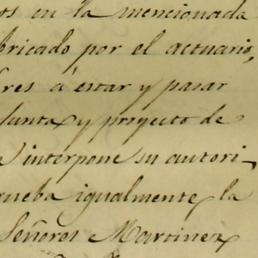 os en la mencionada
bricado por el actuario,
res á estar y pasar
Junta y proyecto de
interpone su autori-
rueba igualmente la
Señores Martinez